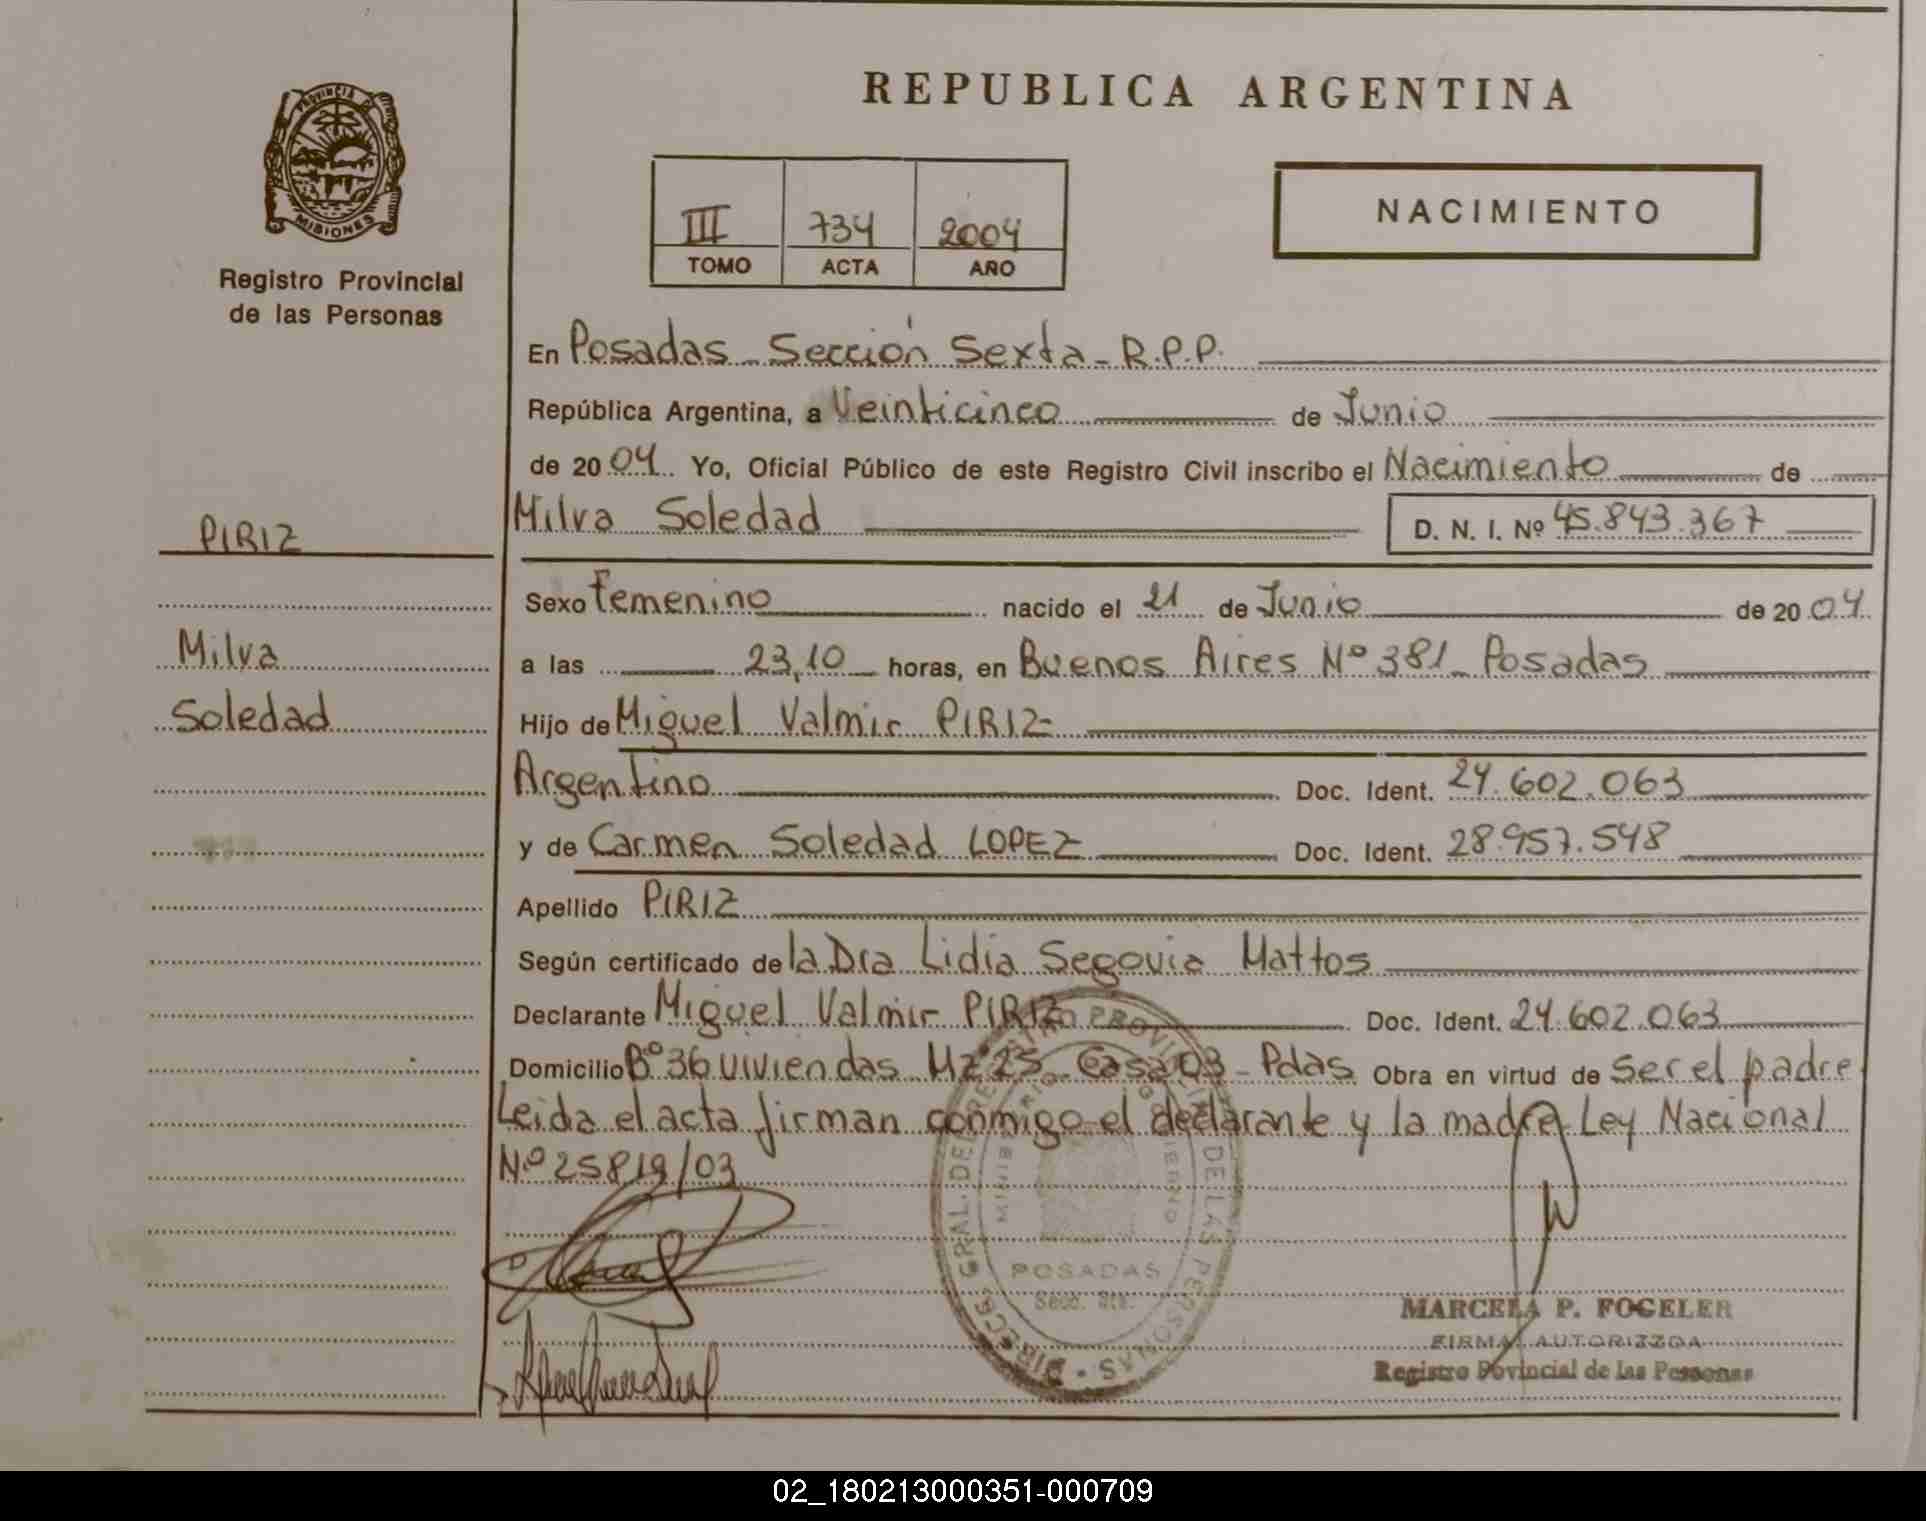 REPUBLICA ARGENTINA
PROVINCIA DE
MISIONES
Registro Provincial
de las Personas
III 734 2004
TOMO ACTA AÑO
NACIMIENTO
En Posadas - Sección Sexta - R.P.P.
República Argentina, a Veinticinco de Junio
de 2004 Yo, Oficial Público de este Registro Civil inscribo el Nacimiento de
Milva Soledad D. N. I. Nº 45.843.367
PIRIZ
Milva
Soledad
Sexo Femenino nacido el 21 de Junio de 2004
a las 23,10 horas, en Buenos Aires Nº 381 - Posadas
Hijo de Miguel Valmir PIRIZ
Argentino Doc. Ident. 24.602.063
y de Carmen Soledad LOPEZ Doc. Ident. 28.957.548
Apellido PIRIZ
Según certificado de la Dra Lidia Segovia Mattos
Declarante Miguel Valmir PIRIZ Doc. Ident. 24.602.063
Domicilio Bº 36 viviendas Mz 25 - Casa 03 - Pdas Obra en virtud de ser el padre
Leida el acta firman conmigo el declarante y la madre Ley Nacional
Nº 25819/03
DIRECC. GRAL. DE REGISTRO PROVINCIAL DE LAS PERSONAS
MINISTERIO DE GOBIERNO
POSADAS
Secc. 6ta.
MARCELA P. FOGELER
FIRMA AUTORIZZDA
Registro Povincial de las Personas
02_180213000351-000709